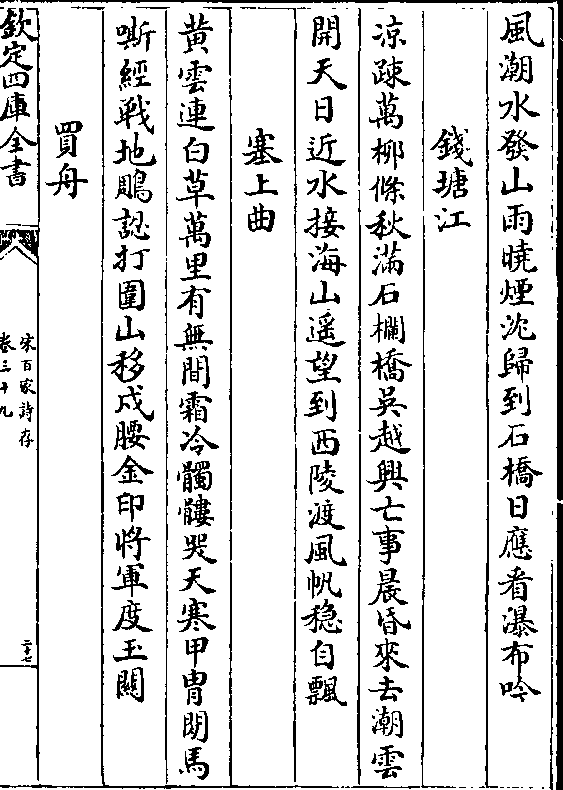 風潮水發山雨曉煙沈歸到石橋日應看瀑布吟
錢塘江
涼疎萬栁條秋滿石欄橋吳越興亡事晨昏來去潮雲
開天日近水接海山遥望到西陵渡風帆穏自飄
塞上曲
黄雲連白草萬里有無間霜冷髑髏哭天寒甲胄閒馬
嘶經戰地鵰認打圍山移戍腰金印將軍度玉關
買舟
欽定四庫全書
宋百家詩存
卷三十九
二十七